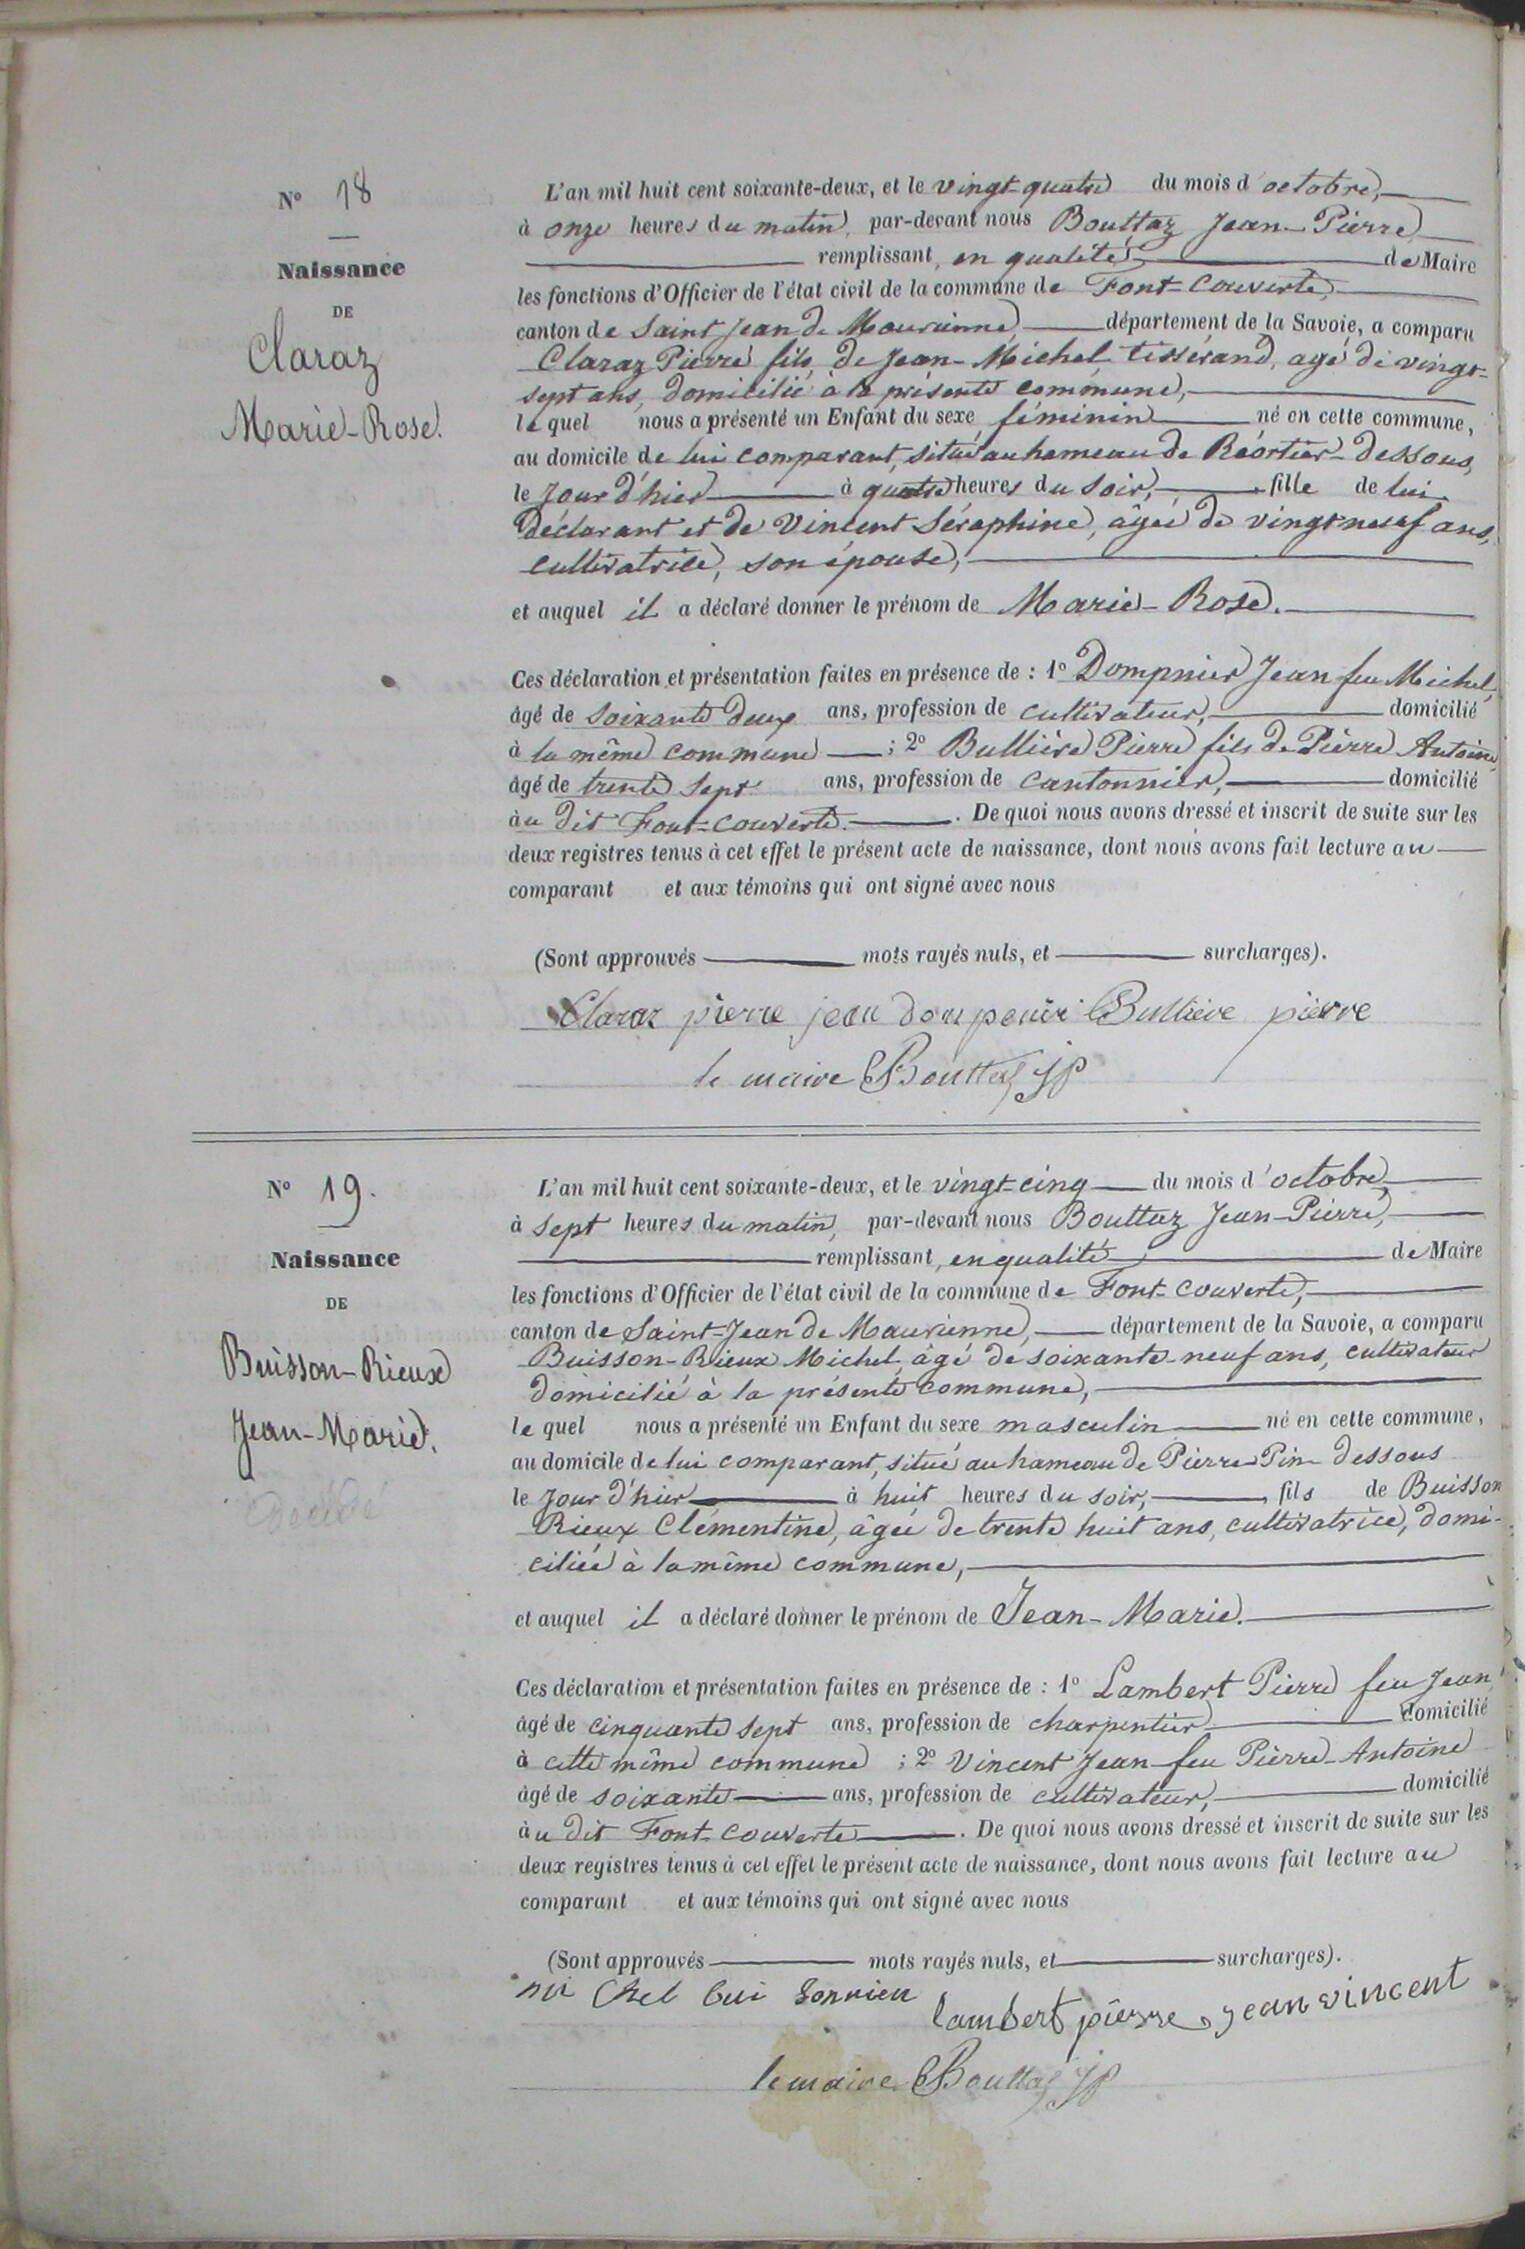 N° 18
Naissance
DE
Claraz
Marie-Rose.
L'an mil huit cent soixante-deux, et le vingt-quatre du mois d'octobre,
à onze heures du matin, par-devant nous Bouttaz Jean-Pierre
remplissant, en qualité de Maire
les fonctions d'Officier de l'état civil de la commune de Font-Couverte,
canton de Saint Jean de Maurienne département de la Savoie, a comparu
Claraz Pierre fils de Jean-Michel tisserand, agé de vingt-
sept ans, domicilié à la présente commune,
le quel nous a présenté un Enfant du sexe féminin né en cette commune,
au domicile de lui comparant, situé au hameau de Réortier-dessous,
le jour d'hier à quatre heures du soir, fille de lui
déclarant et de Vincent Séraphine, âgée de vingt neuf ans,
cultivatrice, son épouse,
et auquel il a déclaré donner le prénom de Marie-Rose.
Ces déclaration et présentation faites en présence de : 1° Dompnier Jean feu Michel,
âgé de soixante deux ans, profession de cultivateur, domicilié
à la même commune ; 2° Bullière Pierre fils de Pierre Antoine
âgé de trente sept ans, profession de cantonnier, domicilié
àu dit Font-couverte. De quoi nous avons dressé et inscrit de suite sur les
deux registres tenus à cet effet le présent acte de naissance, dont nous avons fait lecture au
comparant et aux témoins qui ont signé avec nous
(Sont approuvés mots rayés nuls, et surcharges).
Claraz pierre jean Bullière pierre
le maire Bouttaz JP
N° 19.
Naissance
DE
Buisson-Rieux
Jean-Marie.
Décédé
L'an mil huit cent soixante-deux, et le vingt-cinq du mois d'octobre,
à sept heures du matin, par-devant nous Bouttaz Jean-Pierre,
remplissant, en qualité de Maire
les fonctions d'Officier de l'état civil de la commune de Font-couverte,
canton de Saint-Jean de Maurienne, département de la Savoie, a comparu
Buisson-Rieux Michel, âgé de soixante-neuf ans, cultivateur
domicilié à la présente commune,
le quel nous a présenté un Enfant du sexe masculin né en cette commune,
au domicile de lui comparant, situé au hameau de Pierre-Pin-dessous
le jour d'hier à huit heures du soir, fils de Buisson
Rieux Clémentine, âgée de trente huit ans, cultivatrice, domi-
ciliée à la même commune,
et auquel il a déclaré donner le prénom de Jean-Marie.
Ces déclaration et présentation faites en présence de : 1° Lambert Pierre feu Jean,
âgé de cinquante sept ans, profession de charpentier domicilié
à cette même commune ; 2° Vincent Jean feu Pierre-Antoine
âgé de soixante ans, profession de cultivateur, domicilié
àu dit Font-couverte. De quoi nous avons dressé et inscrit de suite sur les
deux registres tenus à cet effet le présent acte de naissance, dont nous avons fait lecture au
comparant et aux témoins qui ont signé avec nous
(Sont approuvés mots rayés nuls, et surcharges).
lambert pierre jean vincent
le maire Bouttaz JP